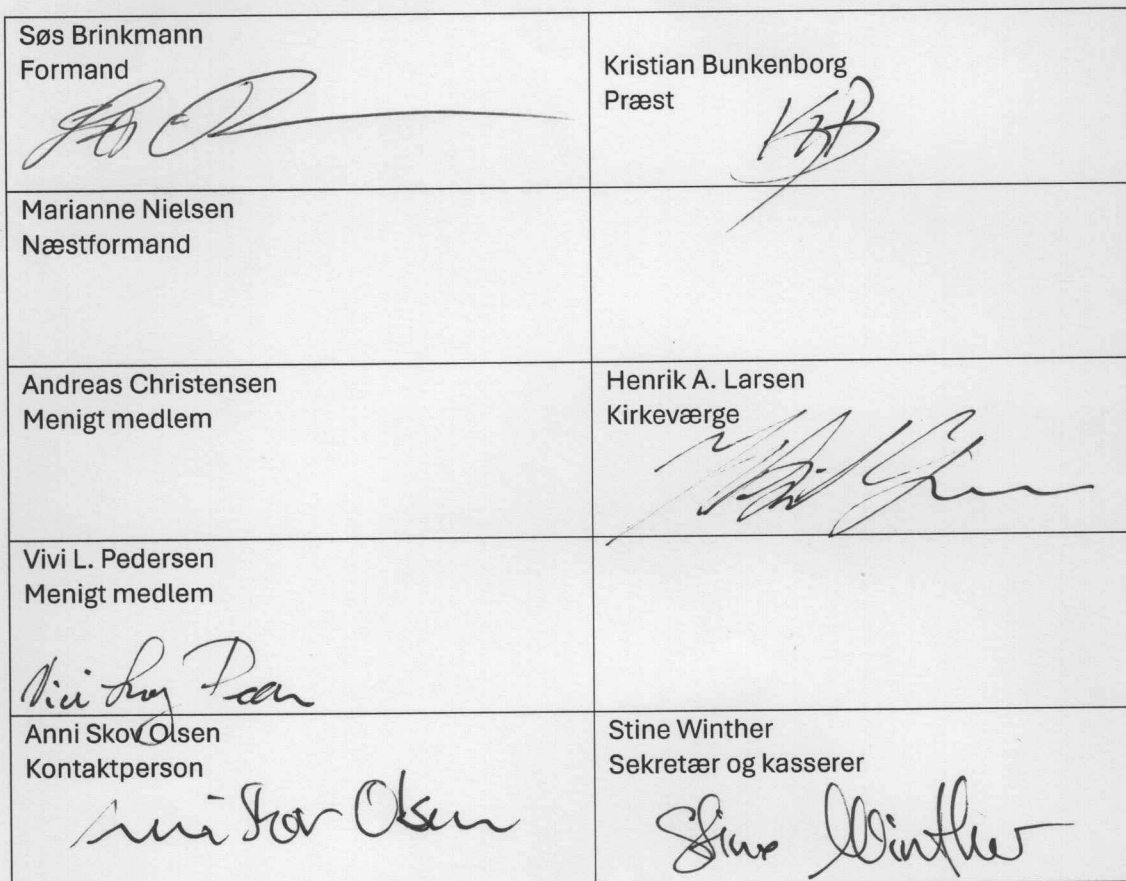 Søs Brinkmann
Formand
Kristian Bunkenborg
Præst
KBB
Marianne Nielsen
Næstformand
Andreas Christensen
Menigt medlem
Henrik A. Larsen
Kirkeværge
Vivi L. Pedersen
Menigt medlem
Anni Skov Olsen
Kontaktperson
Anni Skov Olsen
Stine Winther
Sekretær og kasserer
Stine Winther